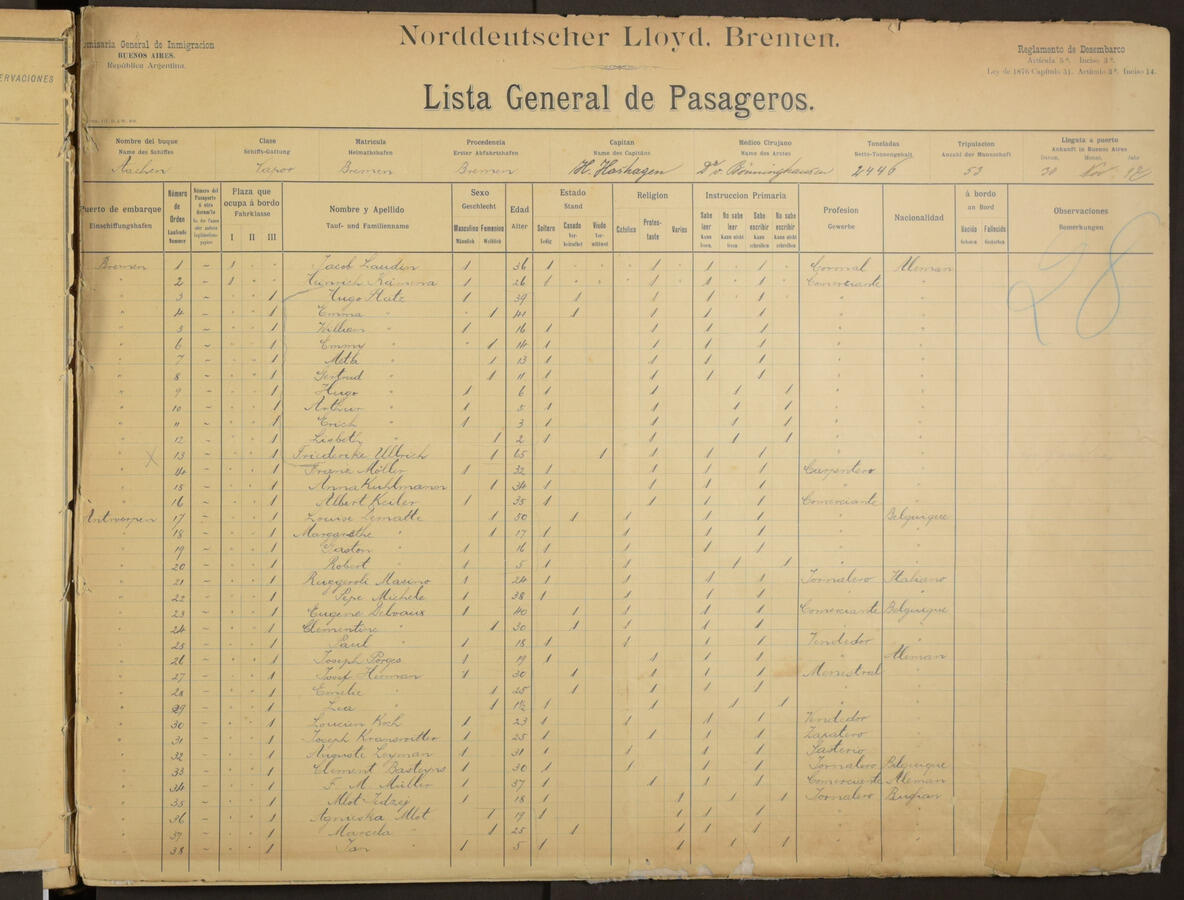 ERVACIONES
misaria General de Inmigracion
BUENOS AIRES.
República Argentina.
Norddeutscher Lloyd, Bremen.
Reglamento de Desembarco
Artícula 5º. Inciso 3º.
Ley de 1876 Capítulo 31. Artículo 3º. Inciso 14.
Lista General de Pasageros.
Nombre del buque Clase Matricula Procedencia Capitan Médico Cirujano Toneladas Tripulacion Llegula a puerto
Name des Schiffes Schiffs-Gattung Heimathshafen Erster Abfahrtshafen Name des Capitäns Name des Arztes Netto-Tonnengehalt Anzahl der Mannschaft Ankunft in Buenos Aires
Datum, Monat, Jahr
Aachen Vapor Bremen Bremen H. Hashagen Dr v. Bönninghausen 2446 53 30 Nov.
Puerto de embarque Einschiffungshafen
Número de Orden Laufende Nummer
Plaza que ocupa á bordo Fahrklasse I II III
Nombre y Apellido Tauf- und Familienname
Sexo Geschlecht Masculino Männlich Femenino Weiblich
Edad Alter
Estado Stand Soltero Ledig Casado Verheirathet Viudo Verwittwet
Religion Catolico Protestante Varios
Instruccion Primaria Sabe leer Kann lesen. No sabe leer Kann nicht lesen Sabe escribir Kann schreiben No sabe escribir Kann nicht schreiben
Profesion Gewerbe
Nacionalidad
á bordo an Bord Nacido Geboren Fallecido Gestorben
Observaciones Bemerkungen
28
Bremen 1 – 1 Jacob Laudin 1 36 1 1 1 1 Coronal Aleman
" 2 – 1 Heinrich Rämena 1 26 1 1 1 1 Comerciante "
" 3 – 1 Hugo Hutz 1 39 1 1 1 1 " "
" 4 – 1 Emma " 1 41 1 1 1 1 " "
" 5 – 1 William " 1 16 1 1 1 1 " "
" 6 – 1 Emmy " 1 14 1 1 1 1 " "
" 7 – 1 Meta " 1 13 1 1 1 1 " "
" 8 – 1 Gertrud " 1 11 1 1 1 1 " "
" 9 – 1 Hugo " 1 6 1 1 1 1 " "
" 10 – 1 Arthur " 1 5 1 1 1 1 " "
" 11 – 1 Erich " 1 3 1 1 1 1 " "
" 12 – 1 Lisbeth " 1 2 1 1 1 1 " "
" 13 – 1 Friederike Ullrich 1 65 1 1 1 1 " "
" 14 – 1 Franz Möller 1 32 1 1 1 1 Carpentero "
" 15 – 1 Anna Kuhlmann 1 34 1 1 1 1 " "
" 16 – 1 Albert Keiler 1 35 1 1 1 1 Comerciante "
Antwerpen 17 – 1 Louise Lematte 1 50 1 1 1 1 " Belguique
" 18 – 1 Margarethe " 1 17 1 1 1 1 " "
" 19 – 1 Gaston " 1 16 1 1 1 1 " "
" 20 – 1 Robert " 1 5 1 1 1 1 " "
" 21 – 1 Ruggeroli Masino 1 24 1 1 1 1 Jornalero Italiano
" 22 – 1 Pepe Michele 1 38 1 1 1 1 " "
" 23 – 1 Eugene Delvaux 1 40 1 1 1 1 Comerciante Belguique
" 24 – 1 Clementine " 1 30 1 1 1 1 " "
" 25 – 1 Paul " 1 18 1 1 1 1 Vendedor "
" 26 – 1 Joseph Porges 1 19 1 1 1 1 " Aleman
" 27 – 1 Josef Herman 1 30 1 1 1 1 Menestral "
" 28 – 1 Emelie " 1 25 1 1 1 1 " "
" 29 – 1 Lea " 1 1½ 1 1 1 1 " "
" 30 – 1 Loucien Koch 1 23 1 1 1 1 Vendedor "
" 31 – 1 Joseph Kransvitter 1 25 1 1 1 1 Zapatero "
" 32 – 1 Auguste Leyman 1 31 1 1 1 1 "
" 33 – 1 Clement Basteyns 1 30 1 1 1 1 Jornalero Belguique
" 34 – 1 F. M. Müller 1 37 1 1 1 1 Comerciante Aleman
" 35 – 1 Mlot Jedzej 1 18 1 1 1 1 Jornalero
" 36 – 1 Agnieska Mlot 1 19 1 1 1 1 " "
" 37 – 1 Marcela " 1 25 1 1 1 1 " "
" 38 – 1 Jan " 1 5 1 1 1 1 " "